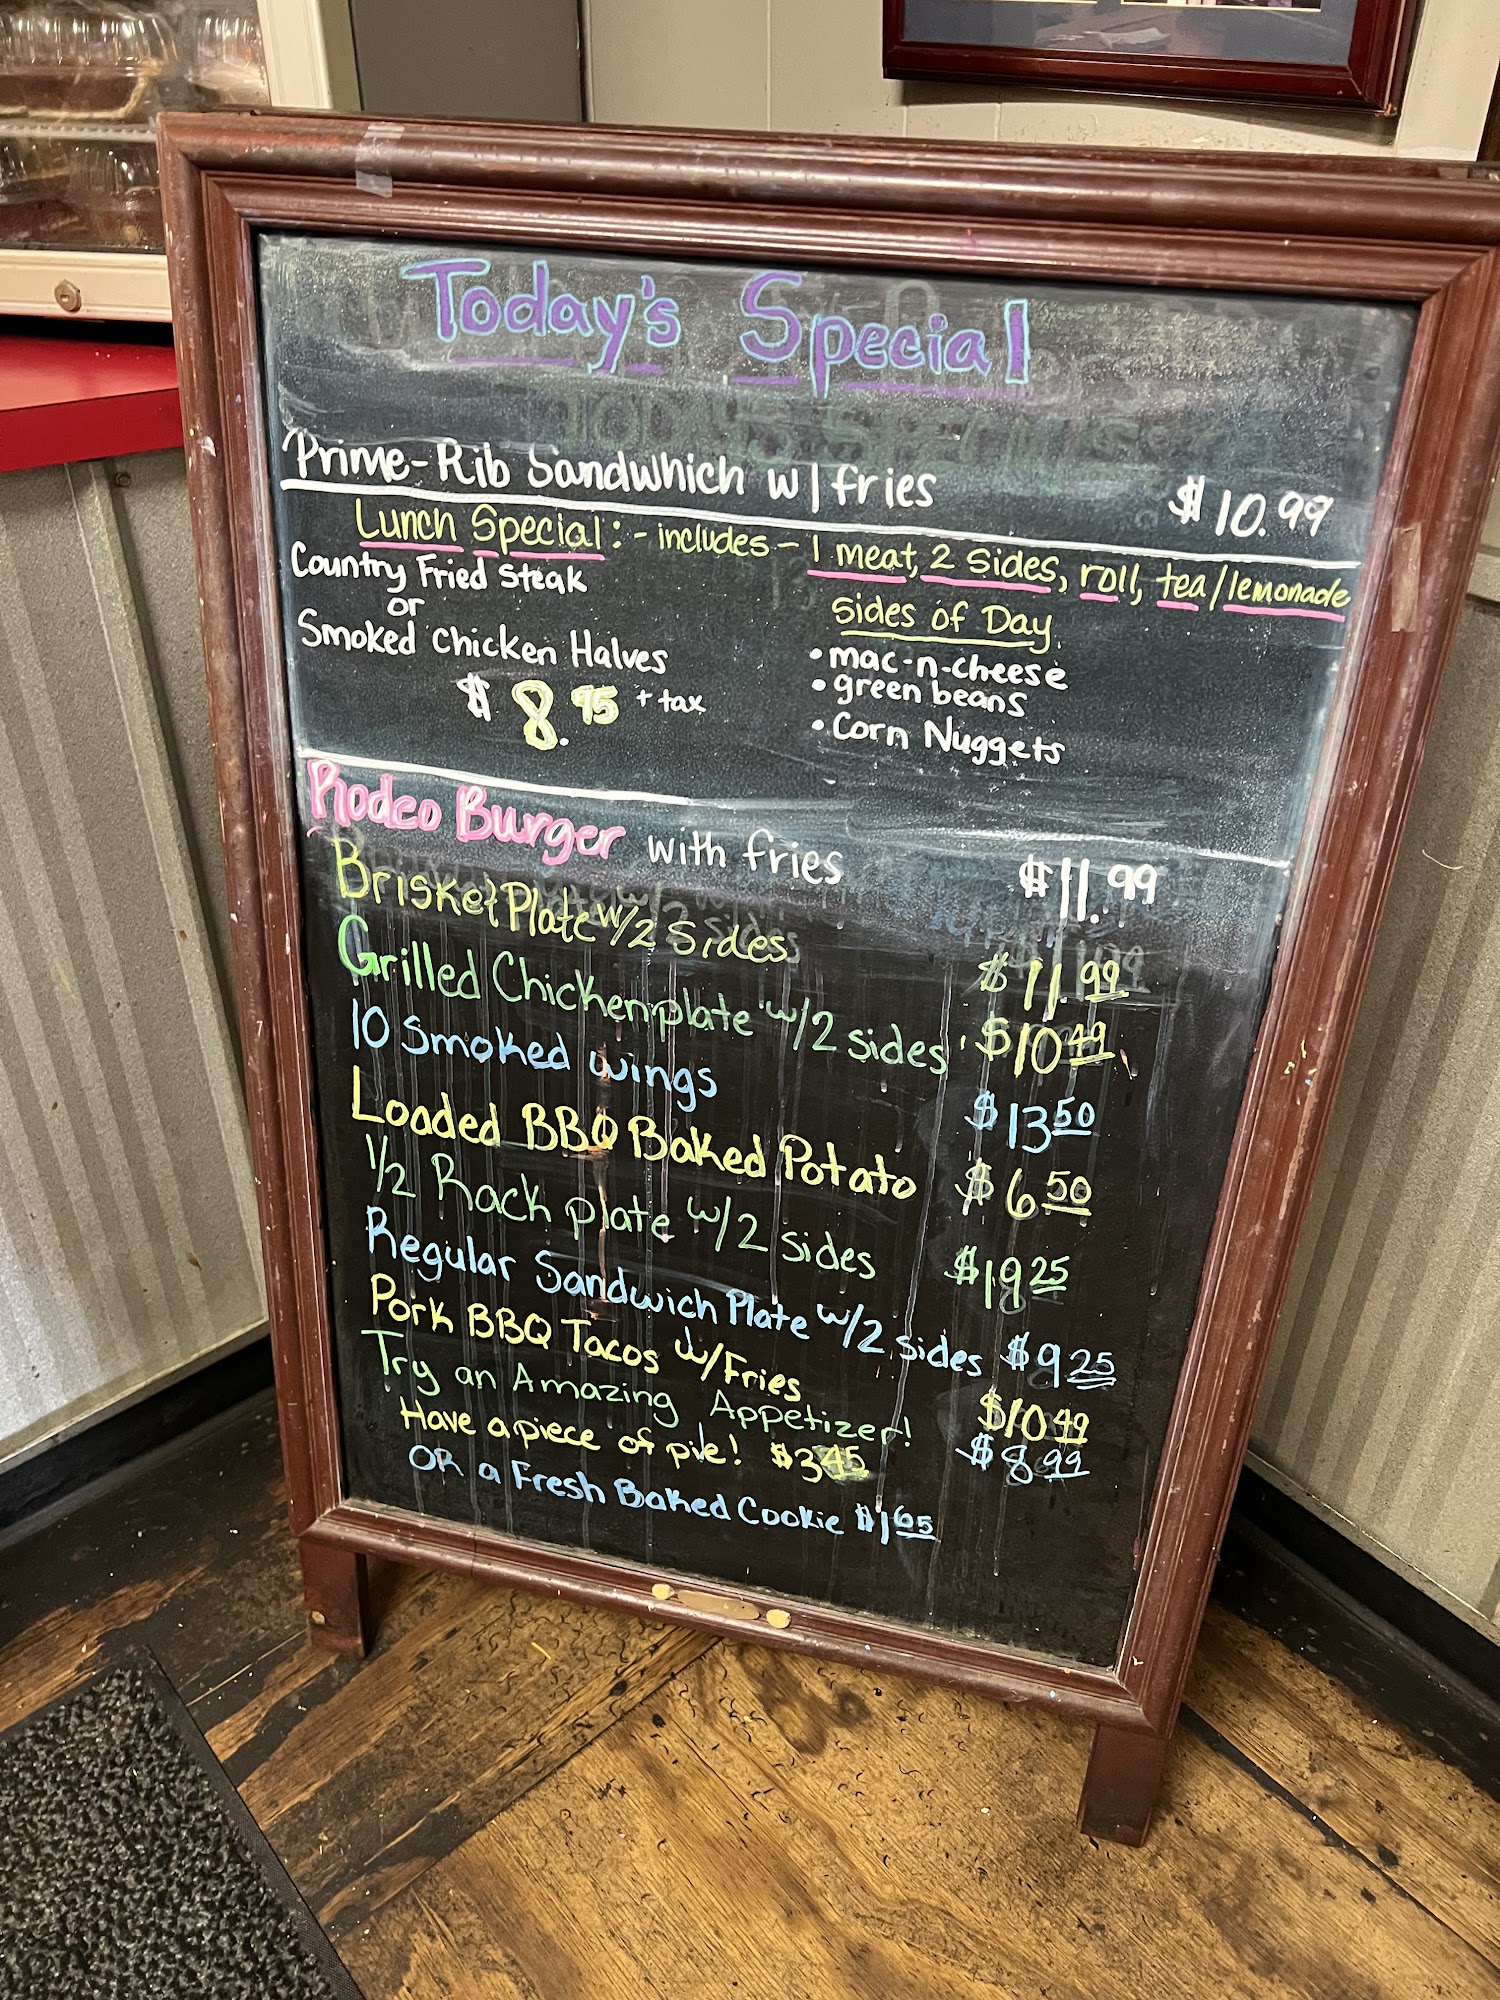 Today's Special
Prime-Rib Sandwhich w/fries $10.99
Lunch Special: - includes - 1 meat, 2 sides, roll, tea/lemonade
Country Fried Steak
or
Smoked Chicken Halves
$8.95 + tax
Sides of Day
• mac-n-cheese
• green beans
• Corn Nuggets
Rodeo Burger with fries $11.99
Brisket Plate w/2 sides $11.99
Grilled Chicken plate w/2 sides $10.49
10 Smoked wings $13.50
Loaded BBQ Baked Potato $6.50
1/2 Rack plate w/2 sides $19.25
Regular Sandwich Plate w/2 sides $9.25
Pork BBQ Tacos w/Fries $10.49
Try an Amazing Appetizer! $8.99
Have a piece of pie! $3.45
OR a Fresh Baked Cookie $1.65